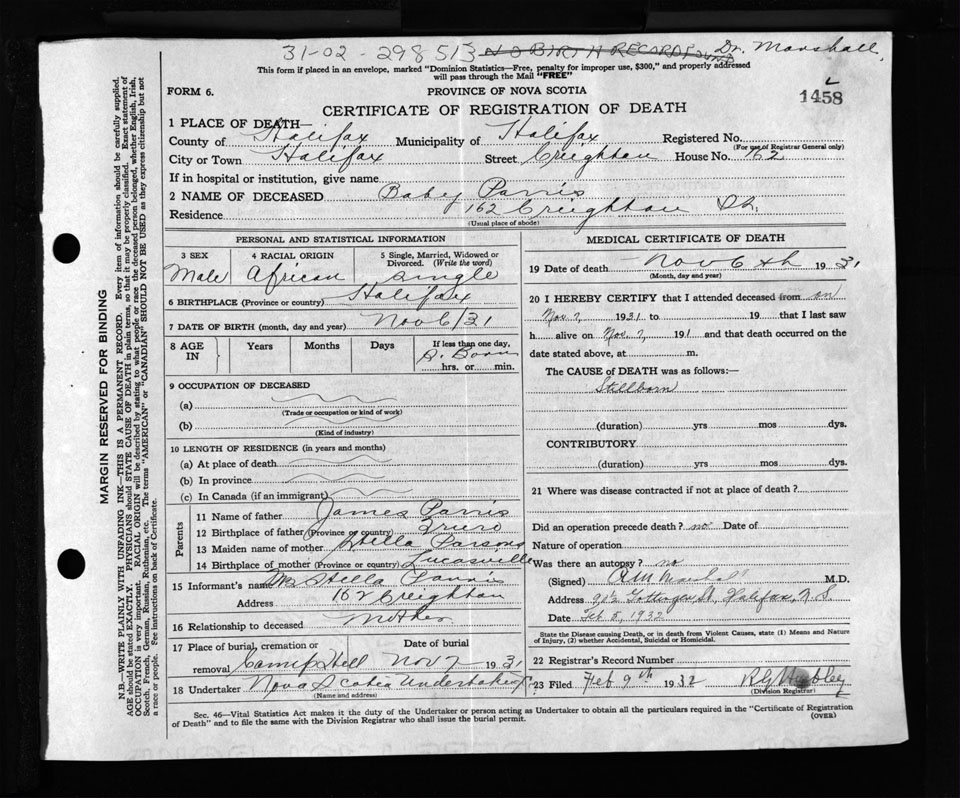 31-02-298513 NO BIRTH RECORD FOUND Dr. Marshall,
This form if placed in an envelope, marked "Dominion Statistics—Free, penalty for improper use, $300," and properly addressed
will pass through the Mail "FREE"
FORM 6. PROVINCE OF NOVA SCOTIA
1458
CERTIFICATE OF REGISTRATION OF DEATH
1 PLACE OF DEATH—
County of Halifax Municipality of Halifax Registered No.
(For use of Registrar General only)
City or Town Halifax Street Creighton House No. 162
If in hospital or institution, give name
2 NAME OF DECEASED Baby Parris
Residence 162 Creighton St.
(Usual place of abode)
PERSONAL AND STATISTICAL INFORMATION
3 SEX 4 RACIAL ORIGIN 5 Single, Married, Widowed or Divorced. (Write the word)
Male African Single
6 BIRTHPLACE (Province or country) Halifax
7 DATE OF BIRTH (month, day and year) Nov 6/31
8 AGE IN Years Months Days If less than one day,
S. Born
hrs. or min.
9 OCCUPATION OF DECEASED
(a)
(Trade or occupation or kind of work)
(b)
(Kind of industry)
10 LENGTH OF RESIDENCE (in years and months)
(a) At place of death
(b) In province
(c) In Canada (if an immigrant)
Parents
11 Name of father James Parris
12 Birthplace of father (Province or country) Truro
13 Maiden name of mother Stella Parsons
14 Birthplace of mother (Province or country) Lucasville
15 Informant's name Mrs Stella Parris
Address 162 Creighton
16 Relationship to deceased Mother
17 Place of burial, cremation or removal Camp Hill Date of burial Nov 7 1931
18 Undertaker Nova Scotia Undertaking
(Name and address)
MEDICAL CERTIFICATE OF DEATH
19 Date of death Nov 6th 1931
(Month, day and year)
20 I HEREBY CERTIFY that I attended deceased from on
Nov. 7, 1931 to 19 that I last saw
h alive on Nov. 7, 191 and that death occurred on the
date stated above, at m.
The CAUSE of DEATH was as follows:—
Stillborn
(duration) yrs mos dys.
CONTRIBUTORY
(duration) yrs mos dys.
21 Where was disease contracted if not at place of death?
Did an operation precede death? no Date of
Nature of operation
Was there an autopsy? no
(Signed) Marshall M.D.
Address Gottingen St, Halifax, N.S.
Date Feb 5, 1932
State the Disease causing Death, or in death from Violent Causes, state (1) Means and Nature of Injury, (2) whether Accidental, Suicidal or Homicidal.
22 Registrar's Record Number
23 Filed Feb 9th 1932
(Division Registrar)
Sec. 46—Vital Statistics Act makes it the duty of the Undertaker or person acting as Undertaker to obtain all the particulars required in the "Certificate of Registration
of Death" and to file the same with the Division Registrar who shall issue the burial permit. (OVER)
MARGIN RESERVED FOR BINDING
N.B.—WRITE PLAINLY WITH UNFADING INK—THIS IS A PERMANENT RECORD. Every item of information should be carefully supplied.
AGE should be stated EXACTLY. PHYSICIANS should STATE CAUSE OF DEATH in plain terms, so that it may be properly classified. Exact statement of
OCCUPATION is very important. RACIAL ORIGIN will be described by stating to what people or race the deceased person belonged, whether English, Irish,
Scotch, French, German, Russian, Ruthenian, etc. The terms "AMERICAN" or "CANADIAN" SHOULD NOT BE USED as they express citizenship but not
a race or people. See instructions on back of Certificate.